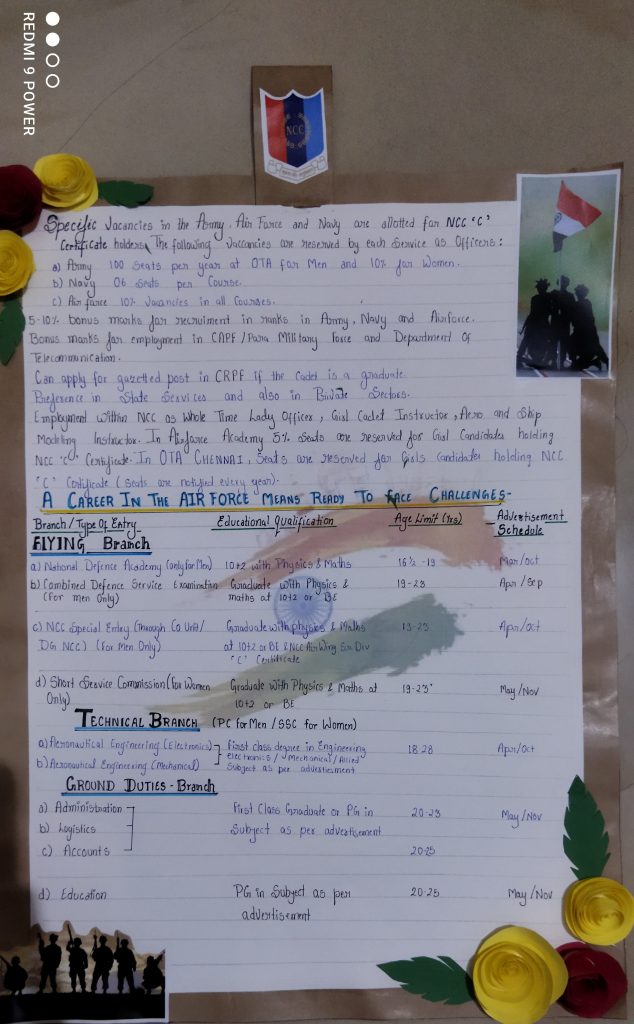 REDMI 9 POWER
NCC
Specific Vacancies in the Army, Air Force and Navy are allotted for NCC 'C'
Certificate holders, The following Vaccancies are reserved by each Service as Officers:
a) Army 100 Seats per year at OTA for Men and 10% for Women.
b) Navy 06 Seats per Course.
c) Air force 10% Vacancies in all Courses.
5-10% bonus marks for recruiment in ranks in Army, Navy and Airforce.
Bonus marks for employment in CAPF/Para Military Force and Department Of
Telecommunication.
Can apply for gazetted post in CRPF if the Cadet is a graduate.
Preference in State Services and also in Private Sectors.
Employment Within NCC as Whole Time Lady Officer, Girl Cadet Instructor, Aero, and Ship
Modeling Instructor. In Airforce Academy 5% Seats are reserved for Girl Candidates holding
NCC 'C' Certificate. In OTA CHENNAI, Seats are reserved for Girls Candidates holding NCC
'C' Certificate (Seats are notified every year).
A CAREER IN THE AIR FORCE MEANS READY TO FACE CHALLENGES-
Branch/Type Of Entry Educational Qualification Age Limit (Yrs) Advertisement Schedule
FLYING Branch
a) National Defence Academy (only for Men) 10+2 with Physics & Maths 16½ -19 Mar/Oct
b) Combined Defence Service Examination Graduate with Physics & 19-23 Apr/Sep
(For men Only) maths at 10+2 or BE
c) NCC Special Entry (through Co Unit/ Graduate with physics & Maths 19-23 Apr/Oct
DG NCC) (for Men Only) at 10+2 or BE & NCC Air Wing Snr Div
'C' Certificate
d) Short Service Commission (for Women Graduate with Physics & Maths at 19-23 May/Nov
Only) 10+2 or BE
TECHNICAL BRANCH (PC for Men / SSC for Women)
a) Aeronautical Engineering (Electronics) First class degree in Engineering 18-28 Apr/Oct
b) Aeronautical Engineering (Mechanical) electronics/Mechanical/Allied
Subject as per advertisement
GROUND DUTIES - Branch
a) Administration First Class Graduate or PG in 20-23 May/Nov
b) Logistics Subject as per advertisement
c) Accounts 20-25
d) Education PG in Subject as per 20-25 May/Nov
advertisement